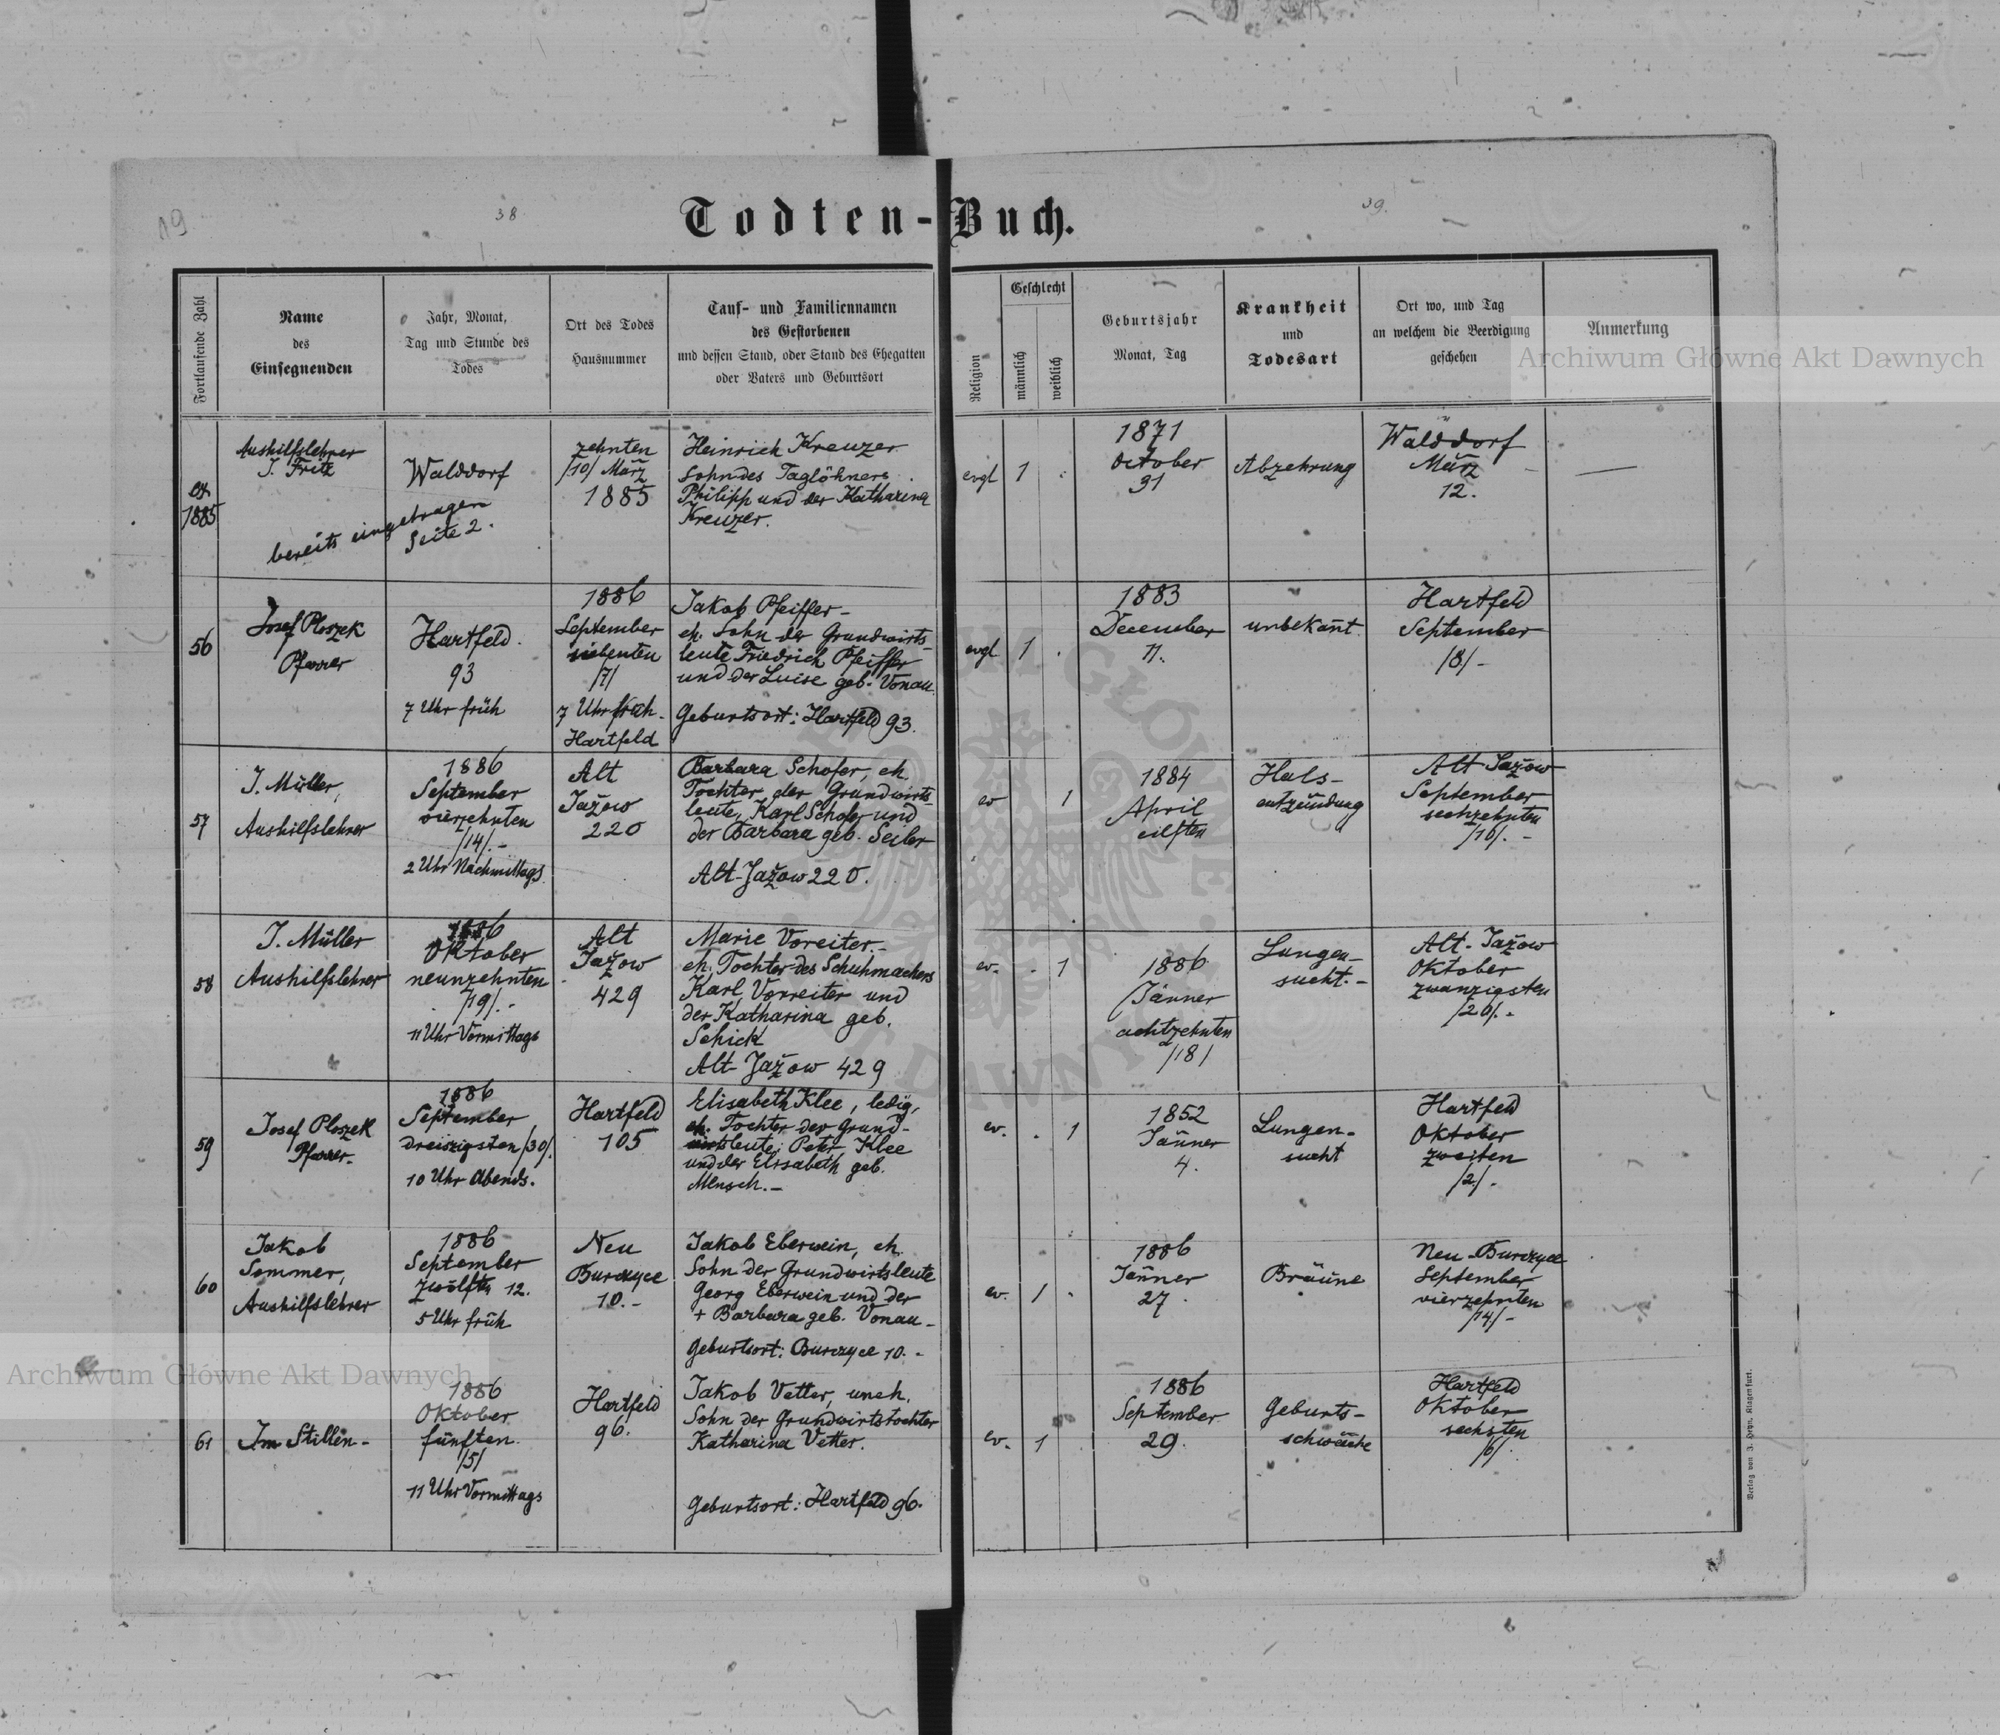 19
38
39.
Todten-Buch.
Fortlaufende Zahl
Name
des
Einsegnenden
Jahr, Monat,
Tag und Stunde des
Todes
Ort des Todes
Hausnummer
Tauf- und Familiennamen
des Gestorbenen
und dessen Stand, oder Stand des Ehegatten
oder Vaters und Geburtsort
Religion
Geschlecht
männlich
weiblich
Geburtsjahr
Monat, Tag
Krankheit
und
Todesart
Ort wo, und Tag
an welchem die Beerdigung
geschehen
Anmerkung
Archiwum Główne Akt Dawnych
1885
Aushilfslehrer
J. Fritz
bereits eingetragen
Seite 2.
Walddorf
zehnten
/10/ März
1885
Heinrich Kreuzer
Sohn des Taglöhners
Philipp und der Katharina
Kreuzer.
evgl
1
1871
October
31
Abzehrung
Walddorf
März
12.
56
Josef Ploszek
Pfarrer
Hartfeld.
93
7 Uhr früh
1886
September
siebenten
/7/
7 Uhr früh.
Hartfeld
Jakob Pfeiffer-
eh. Sohn der Grundwirts-
leute Friedrich Pfeiffer
und der Luise geb. Vonau.
Geburtsort: Hartfeld 93.
evgl
1
1883
December
11.
unbekannt
Hartfeld
September
/8/-
57
J. Müller,
Aushilfslehrer
1886
September
vierzehnten
/14/.-
2 Uhr Nachmittags
Alt
Jažow
220
Barbara Schofer, eh.
Tochter der Grundwirts-
leute, Karl Schofer und
der Barbara geb. Seiler
Alt-Jažow 220.
ev
1
1884
April
eilften
Hals-
entzündung
Alt Jažow
September
sechzehnten
/16/.-
58
J. Müller
Aushilfslehrer
1886
Oktober
neunzehnten
/19/.-
11 Uhr Vormittags
Alt
Jažow
429
Marie Voreiter.-
eh. Tochter des Schuhmachers
Karl Vorreiter und
der Katharina geb.
Schick
Alt-Jažow 429
ev.
1
1886
Jänner
achtzehnten
/18/
Lungen-
sucht.-
Alt-Jažow
Oktober
zwanzigsten
/20/.-
59
Josef Ploszek
Pfarrer.
1886
September
dreiszigsten /30/.
10 Uhr Abends.
Hartfeld
105
Elisabeth Klee, ledig,
eh. Tochter der Grund-
wirtsleute: Peter Klee
und der Elisabeth geb.
Mensch.-
ev.
1
1852
Jänner
4.
Lungen-
sucht
Hartfeld
Oktober
zweiten
/2/.
60
Jakob
Sommer,
Aushilfslehrer
1886
September
zwölften 12.
5 Uhr früh
Neu
Burczyce
10.-
Jakob Eberwein, eh.
Sohn der Grundwirtsleute
Georg Eberwein und der
+ Barbara geb. Vonau-
Geburtsort: Burczyce 10.-
ev.
1
1886
Jänner
27.
Bräune
Neu-Burczyce
September
vierzehnten
/14/-
61
Im Stillen-
1886
Oktober
fünften
/5/
11 Uhr Vormittags
Hartfeld
96.
Jakob Vetter, uneh.
Sohn der Grundwirtstochter
Katharina Vetter.
Geburtsort: Hartfeld 96.
ev.
1
1886
September
29.
Geburts-
schwäche
Hartfeld
Oktober
sechsten
/6/
Archiwum Główne Akt Dawnych
Verlag von J. Heyn, Klagenfurt.